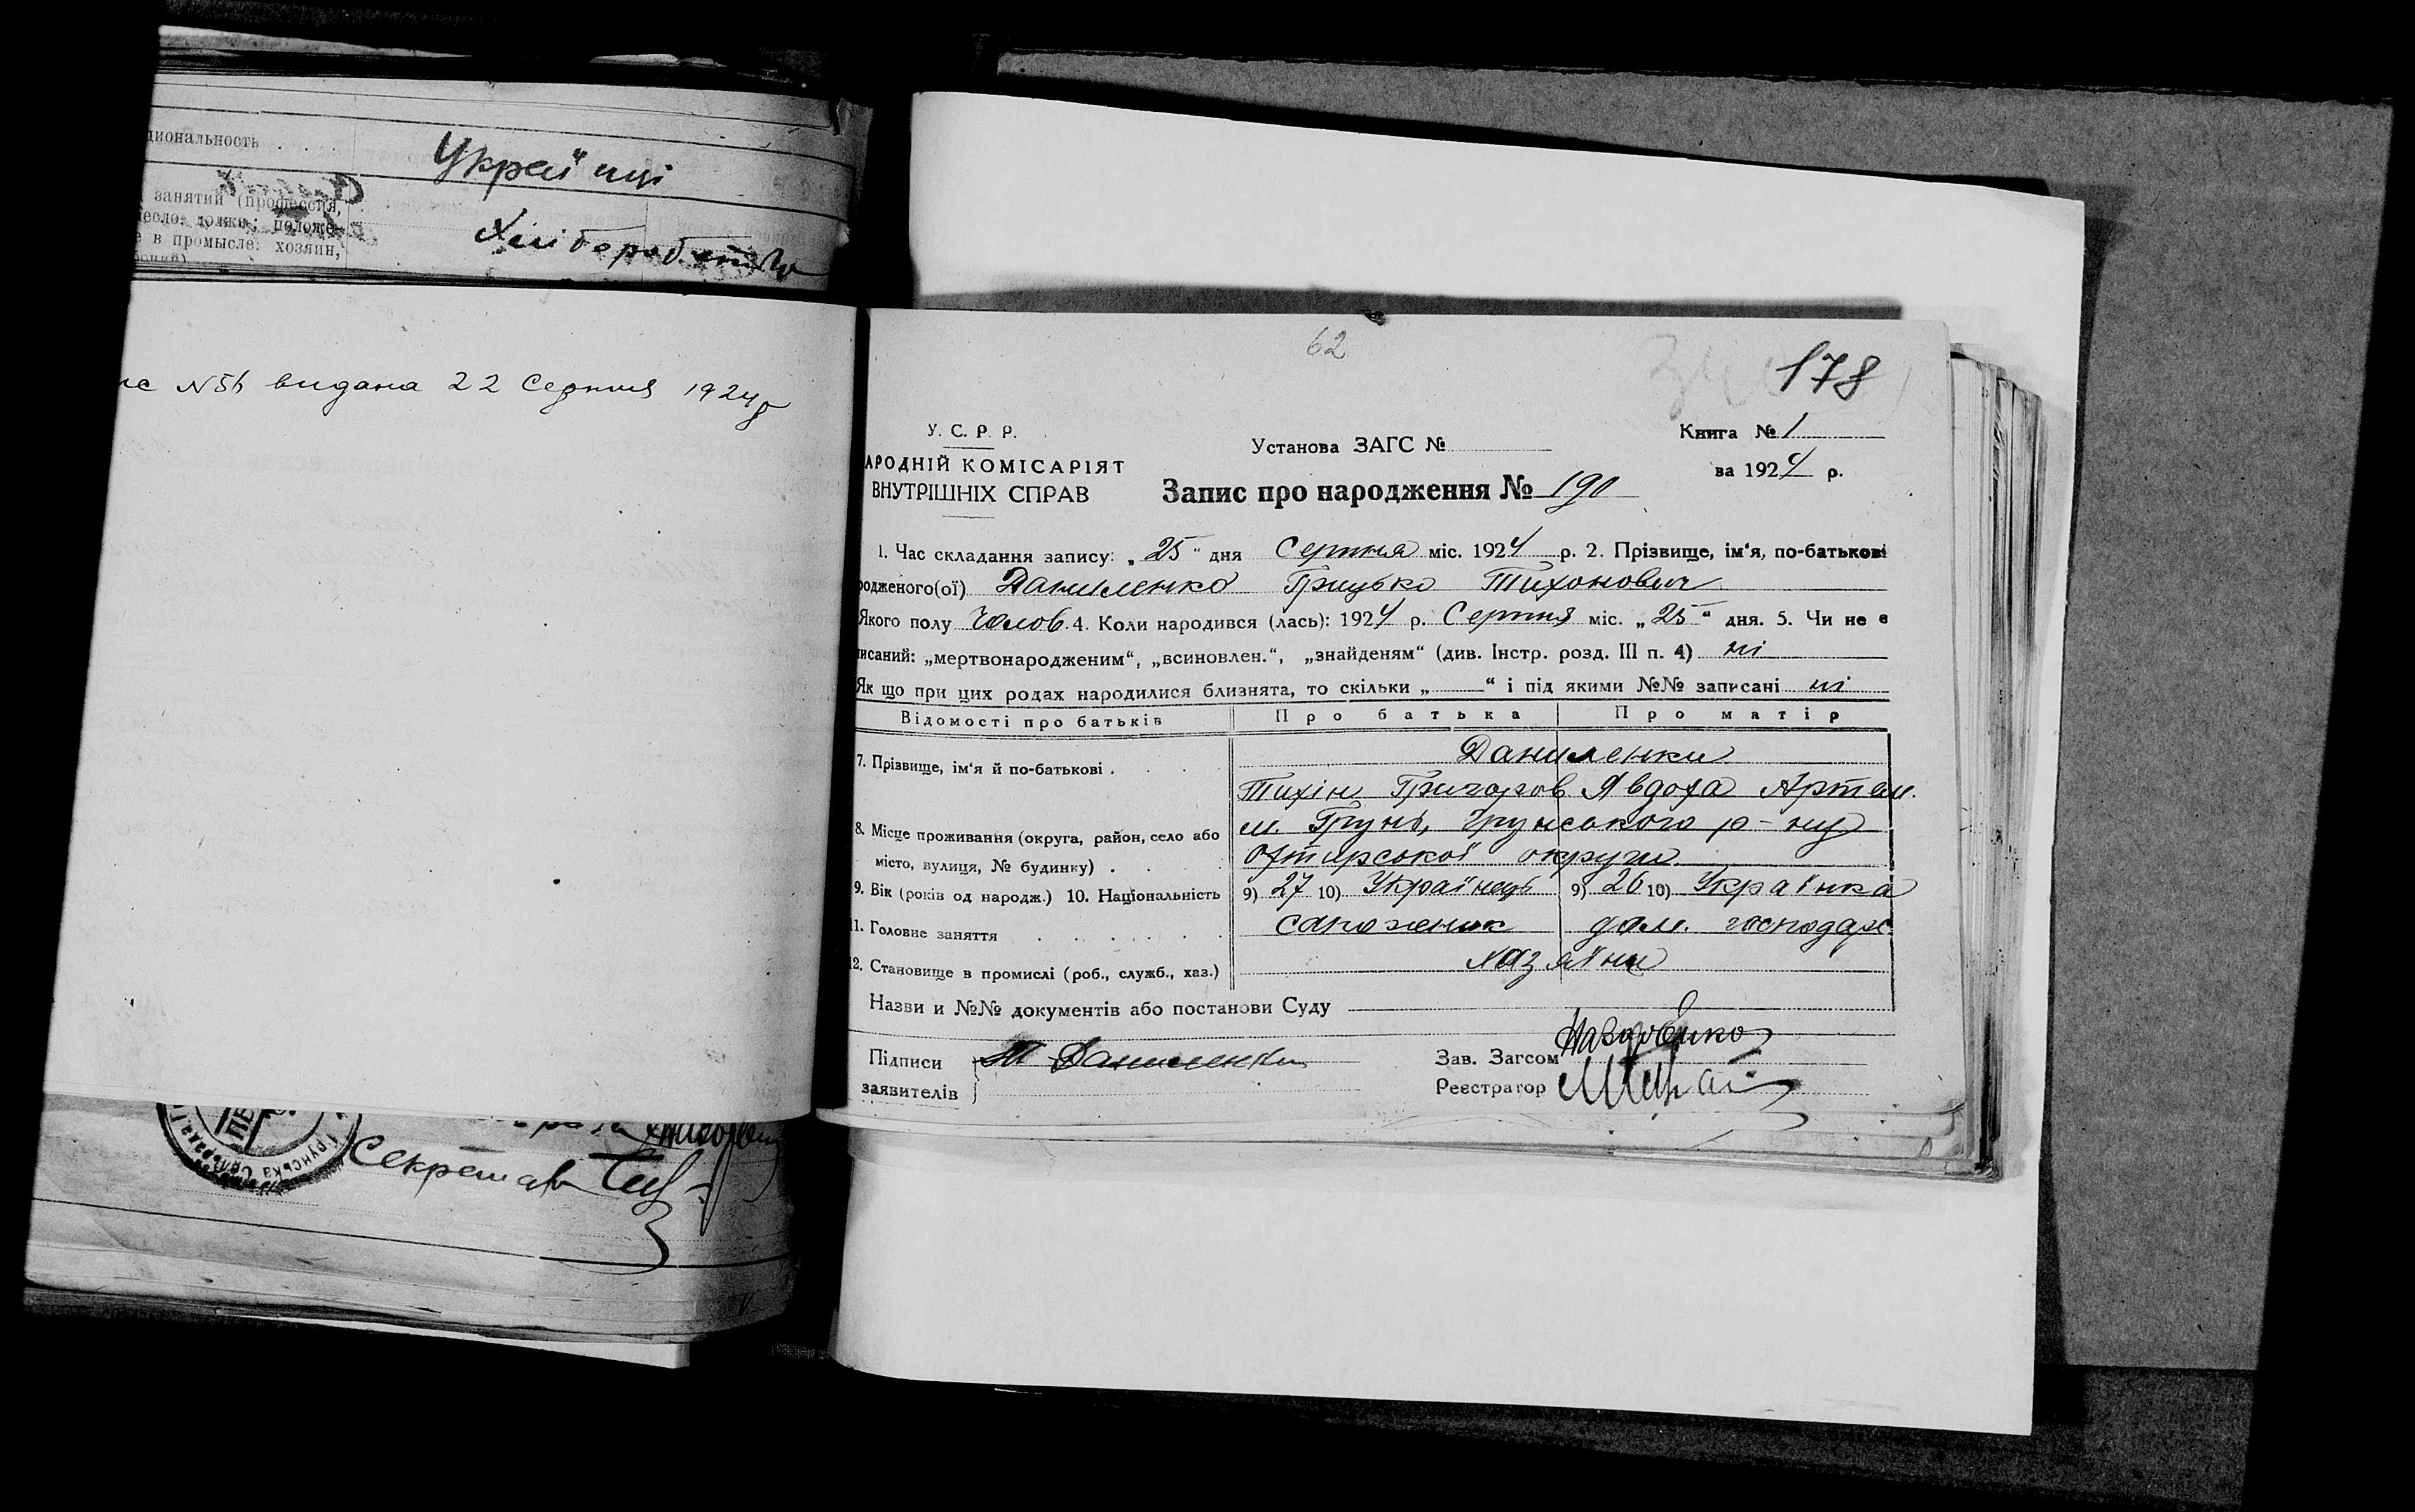 циональность . . . Українці
занятий (професcия,
в промысле: хозяин,
Хліборобство
N 51 видана 22 Серпня 1924 р
Секретар
62
178
У. С. Р. Р.
АРОДНІЙ КОМІСАРІЯТ
ВНУТРІШНІХ СПРАВ
Установа ЗАГС №
Книга № 1
за 1924 р.
Запис про народження № 190
1. Час складання запису: „25“ дня Серпня міс. 1924 р. 2. Прізвище, ім'я, по-батькові
родженого(ої) Даниленко Грицько Тихонович
Якого полу Чолов. 4. Коли народився (лась): 1924 р. Серпня міс. „25“ дня. 5. Чи не є
писаний: „мертвонародженим“, „всиновлен.“, „знайденям“ (див. Інстр. розд. III п. 4) ні
Як що при цих родах народилися близнята, то скільки „——“ і під якими №№ записані ні
Відомості про батьків Про батька Про матір
7. Прізвище, ім'я й по-батькові . Даниленки
Тихін Григоров. Явдоха Артем.
8. Місце проживання (округа, район, село або м. Грунь, Грунського р-ну
місто, вулиця, № будинку) . Охтирської округи
9. Вік (років од народж.) 10. Національність 9) 27 10) Українець 9) 26 10) Українка
11. Головне заняття . . . . . . сапожник дом. господар.
12. Становище в промислі (роб., служб., хаз.) хазяїни
Назви и №№ документів або постанови Суду
Підписи Т Даниленко
заявителів
Зав. Загсом Назаренко
Реєстратор